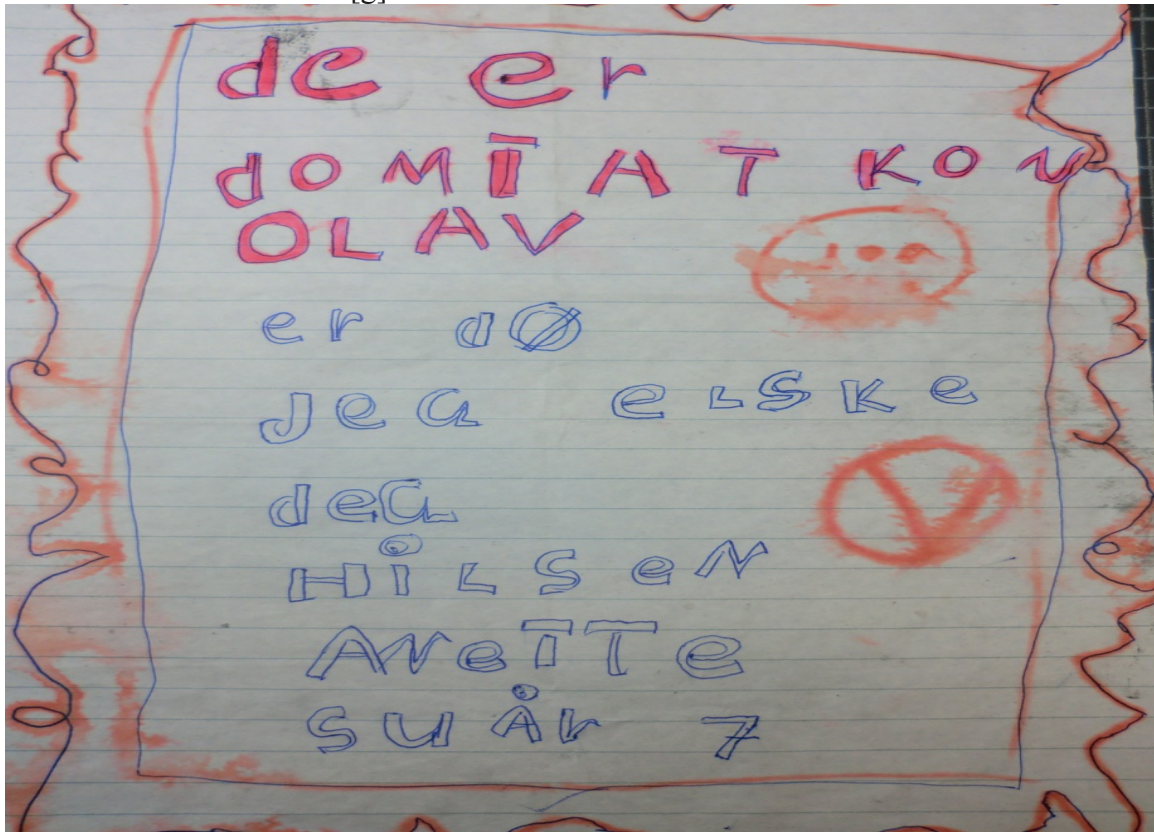 de er
doMTAT KON
OLAV
er dØ
JeG eLSKe
deG
HiLSeN
ANeTTe
SUÅr 7